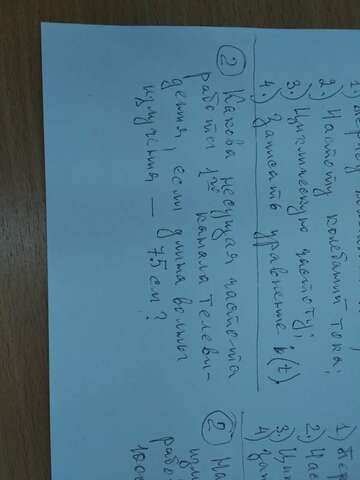 1) Период
2.) Частоту колебаний тока;
3.) Циклическую частоту;
4.) Записать уравнение i(t)
② Какова несущая частота
работы 1го канала телеви-
дения, если длина волны
излучения — 75см?
1) Пер
2.) Час
3.) Ци
4) Зап
② На
изл
рабо
1000